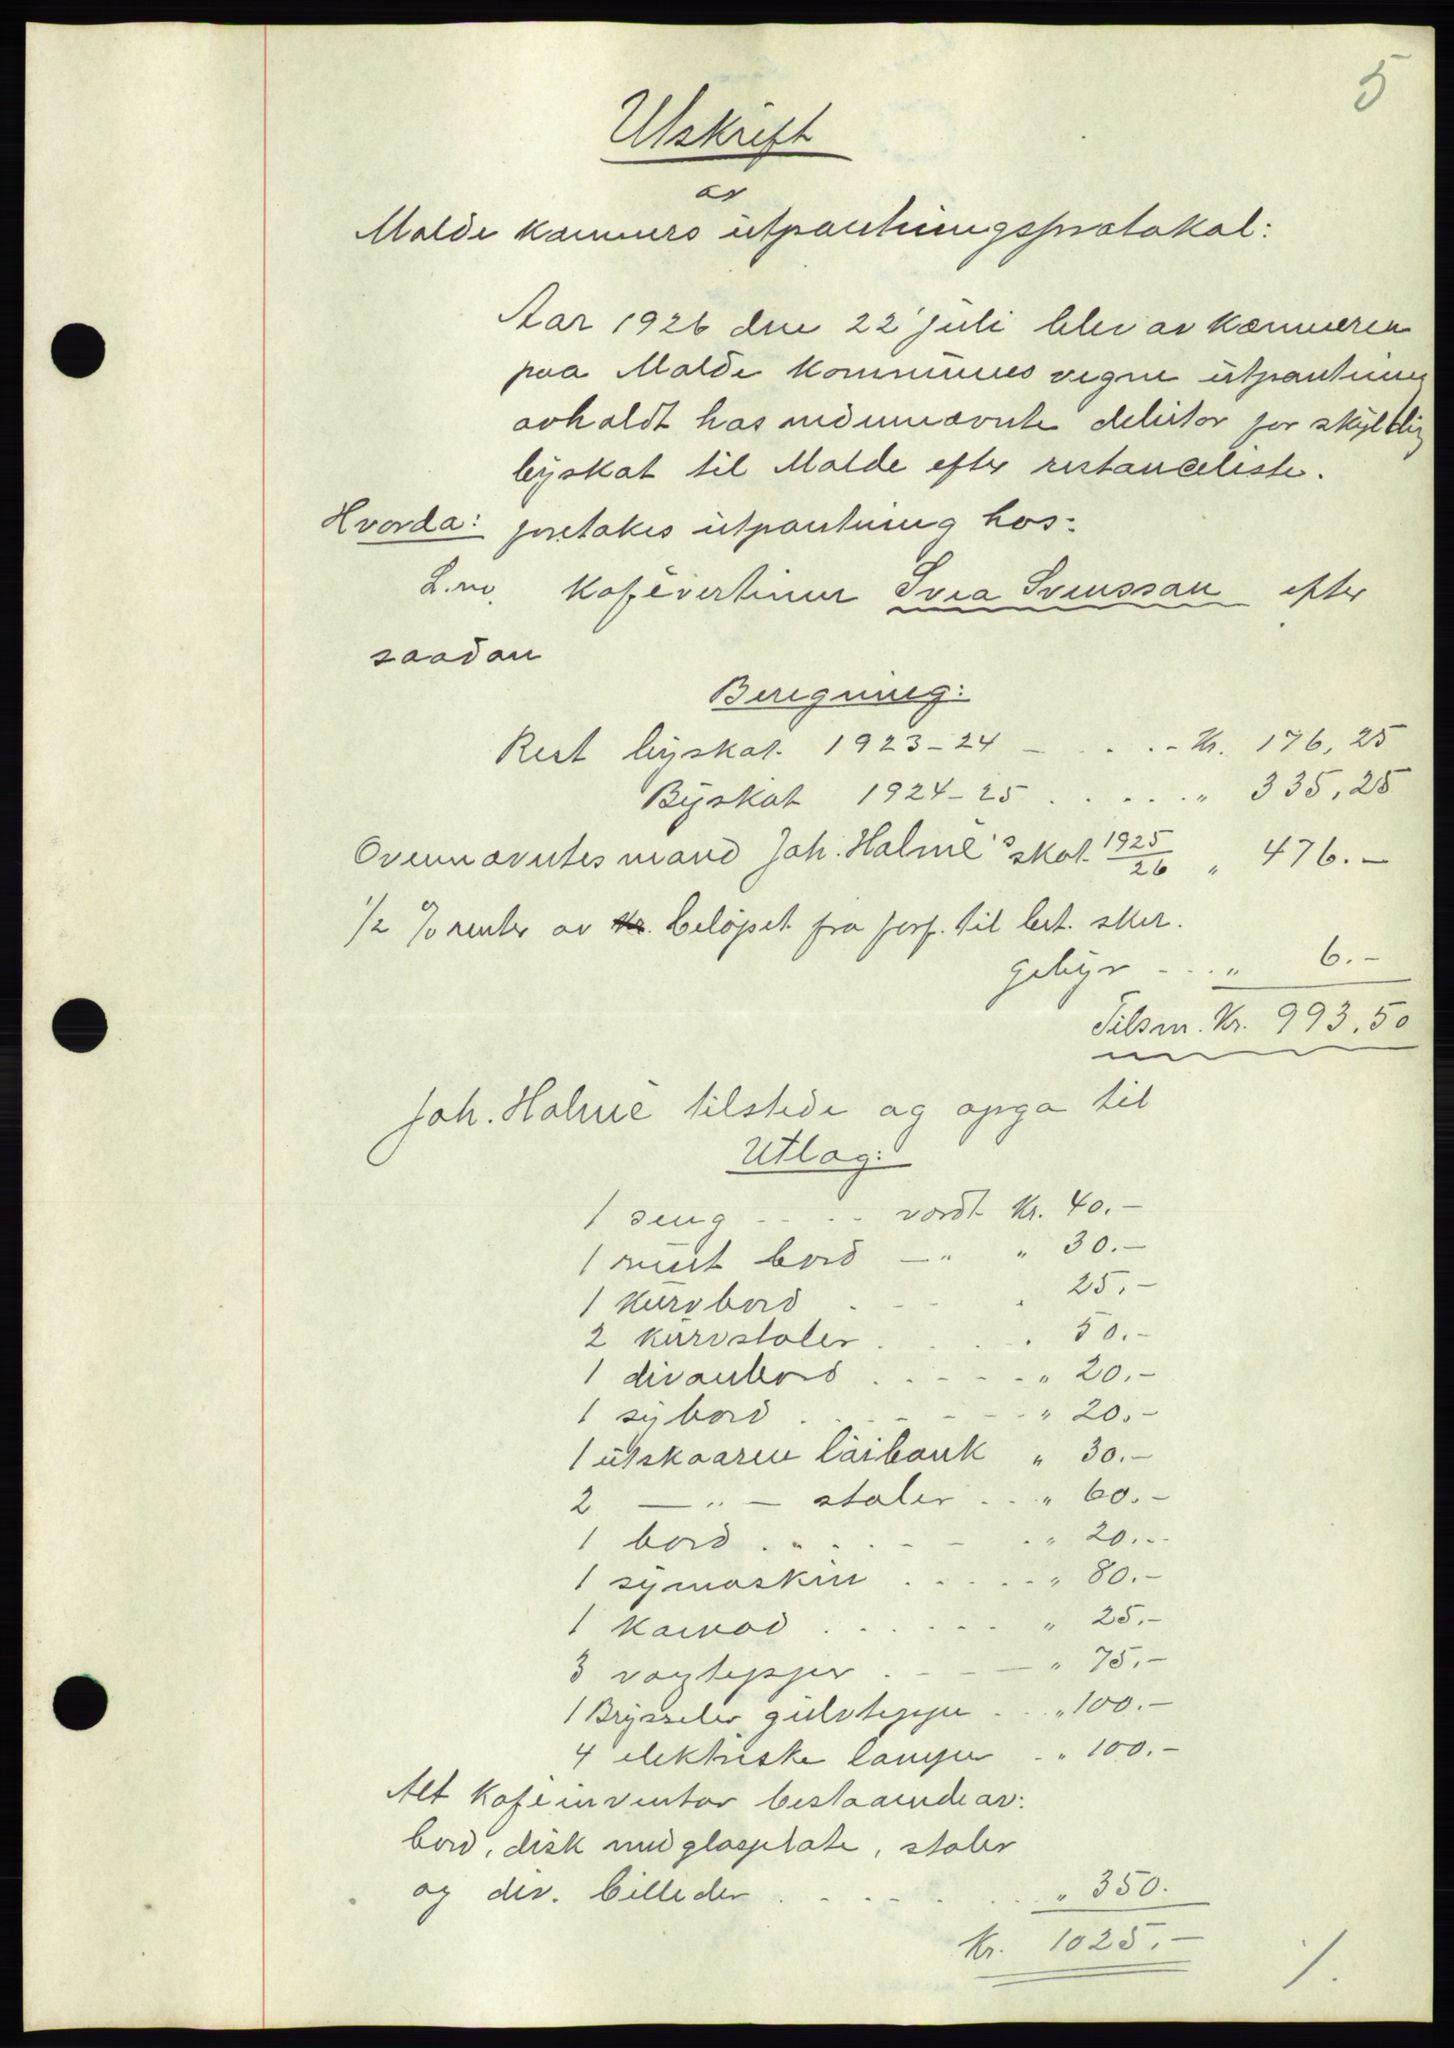 5
Utskrift
av
Molde kæmners utpantningsprotokol:
Aar 1926 den 22' juli blev av kæmneren
paa Molde kommunes vegne utpantning
avholdt hos nedennævnte debitor for skyldig
byskat til Molde efter restanceliste.
Hvorda: foretokes utpantning hos:
L.no. Kafévertinne Svea Svensson efter
saadan
Beregning:
Rest byskat 1923-24 - . . . - Kr. 176,25
Byskat 1924-25 . . . . . " 335,25
Ovennævntes mand Joh. Holmé's skat 1925/26 " 476.-
1/2 % renter av kr. beløpet fra forf. til bet. sker.
gebyr - . . " 6.-
Tilsm. Kr. 993.50
Joh. Holmé tilstede og opga til
Utlæg:
1 seng - - . . værdt Kr. 40.-
1 rundt bord - " " 30.-
1 kurvbord . - - . 25.-
2 kurvstoler . . . . 50.-
1 divanbord . . - - - " 20.-
1 sybord . . - - - - " 20.-
1 utskaaren laibænk " 30.-
2 - " - stoler . . " 60.-
1 bord . . . . - - . " 20.-
1 symaskin . . . . . " 80.-
1 komod . . . . . . " 25.-
3 vægtepper . - - - " 75.-
1 Brysseler gulvteppe . . " 100.-
4 elektriske lamper . " 100.-
Alt kaféinventar bestaaende av:
bord, disk med glasplate, stoler
og div. billeder . . . . . . " 350.
Kr. 1025.-
/.